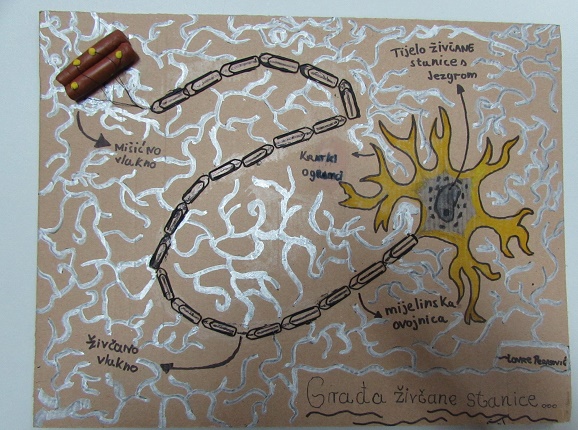 Tijelo živčane
stanice s
Jezgrom
Mišićvo
vlakno
Kratki
ogranci
mijelinska
ovojnica
živčano
vlakno
Lovre
Građa živčane stanice...